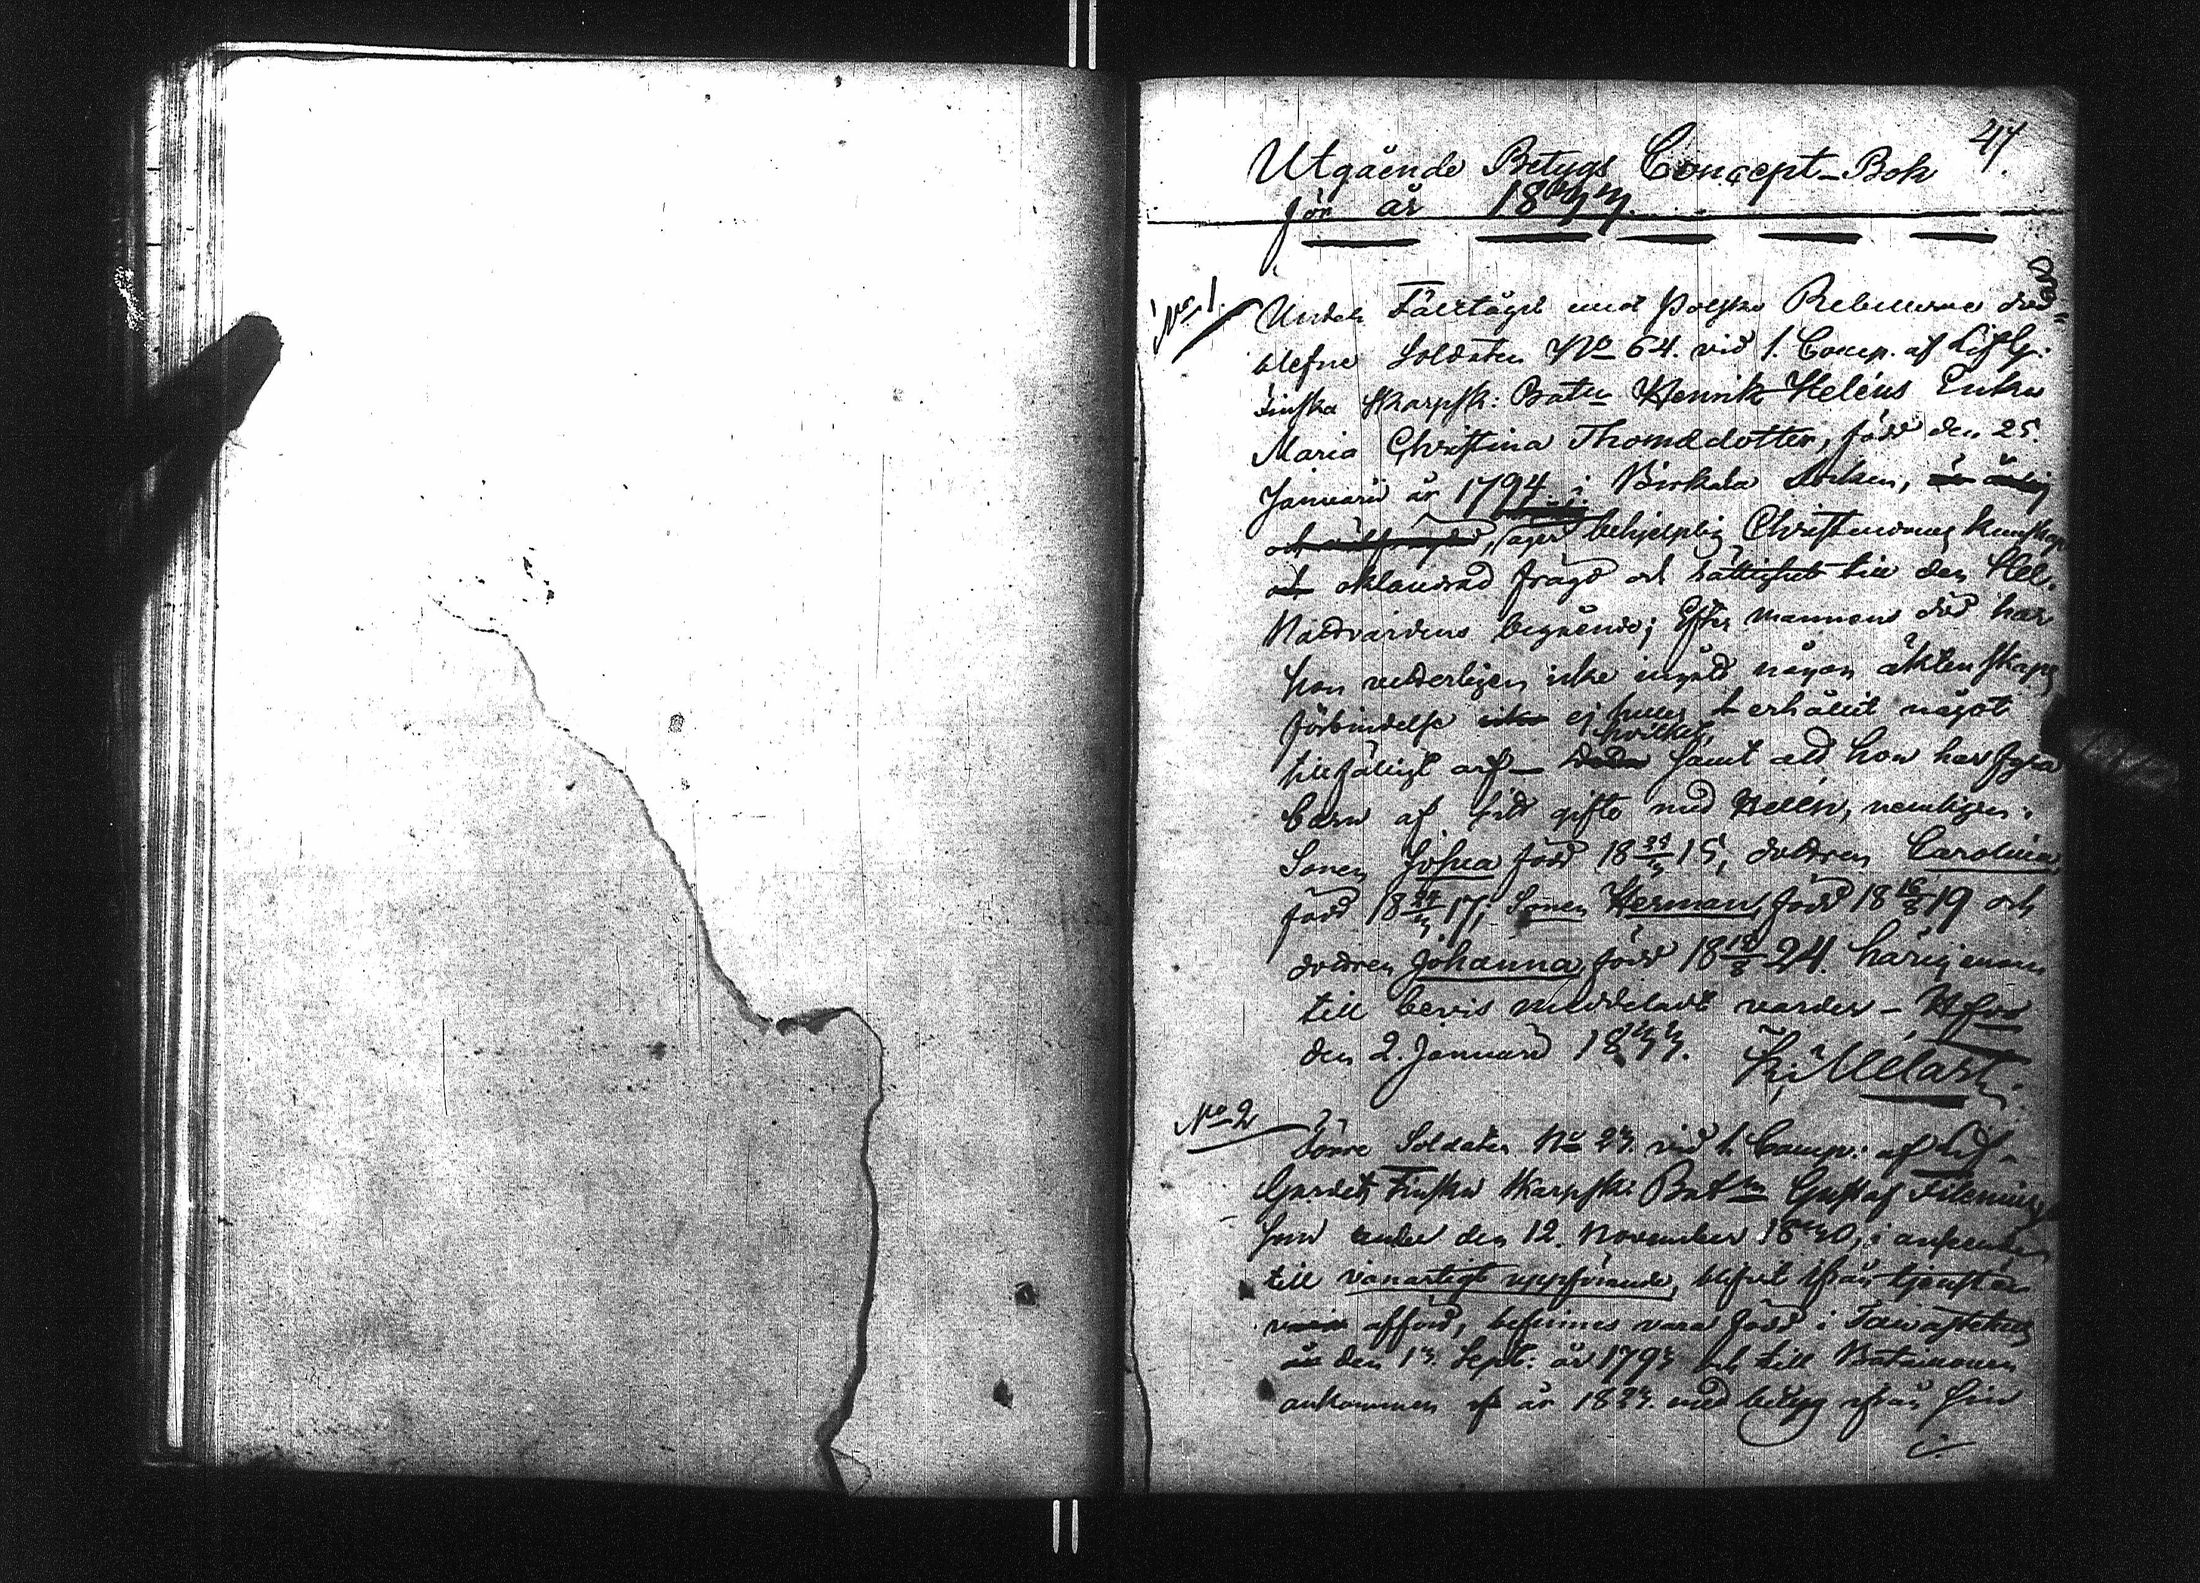 47.
Utgående Betygs Concept-Bok
för år 1833.
No 1.
Under Fälttåget mot Polska Rebellerne död-
blefne Soldaten No 64. vid 1. Comp. af Lif G:
Finska Skarpsk: Batn Henrik Heléns Enka
Maria Christina Thomædotter, född den 25.
Januarii år 1794 i Birkala Socken, är ärlig
och, äger behjelplig Christendoms kunskap
och oklandrad frägd och rättighet till den Hel.
Nattvardens begående; Efter mannens död har
hon veterligen icke ingått någon äktenskaps
förbindelse ej heller erhållit något
tillfälligt arf – hvilket, samt att hon har fyra
barn af sitt gifte med Helén, nemligen:
Sonen Josua född 18 24/3 15, dottren Carolina
född 18 24/3 17, Sonen Herman, född 18 16/8 19 och
dottren Johanna, född 18 18/8 24. härigenom
till bevis meddeladt varder – Hfors
den 2. Januarii 1833.
No 2
Förre Soldaten No 23. vid 1. Comp: af Lif-
Gardets Finska Skarpsk: Batn Gustaf Filenius
som under den 12. November 1830, i anseende
till vanartigt uppförande, blifvit ifrån tjensten
afförd, befinnes vara född i Tawastehus
den 13. Sept: år 1793 och till Bataillonen
ankommen år 1823. med betyg ifrån sin